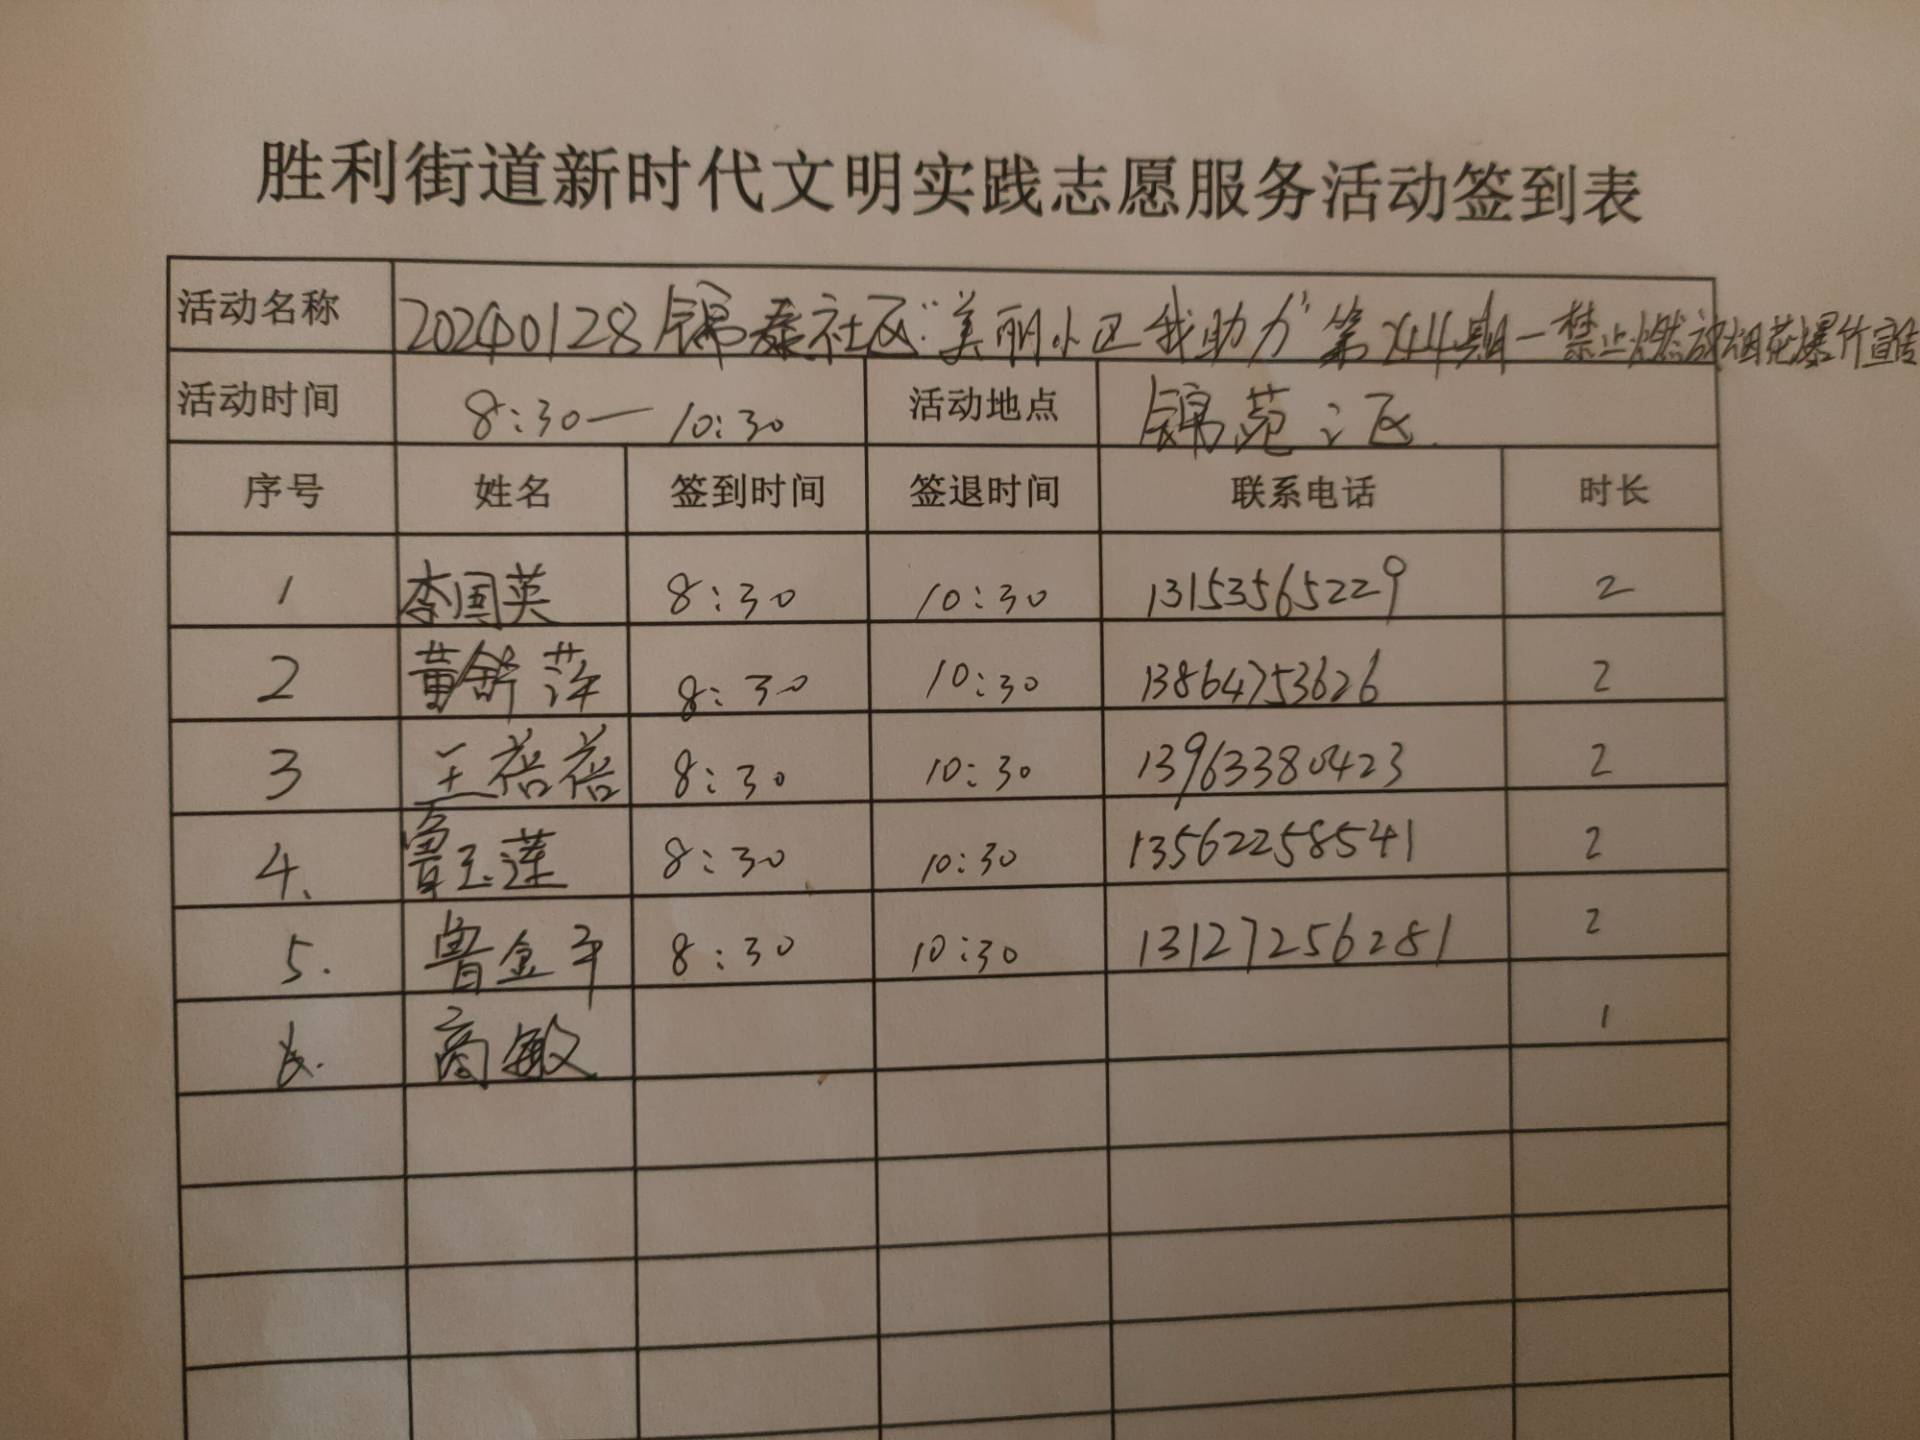 胜利街道新时代文明实践志愿服务活动签到表
活动名称 20240128锦泰社区“美丽小区我助力”第244期—禁止燃放烟花爆竹宣传
活动时间 8:30—10:30 活动地点 锦苑三区
序号 姓名 签到时间 签退时间 联系电话 时长
1 李国英 8:30 10:30 13153565229 2
2 董舒萍 8:30 10:30 13864753626 2
3 王蓓蓓 8:30 10:30 13963380423 2
4. 鲁玉莲 8:30 10:30 13562258541 2
5. 鲁金平 8:30 10:30 13127256281 2
6. 商敏 1